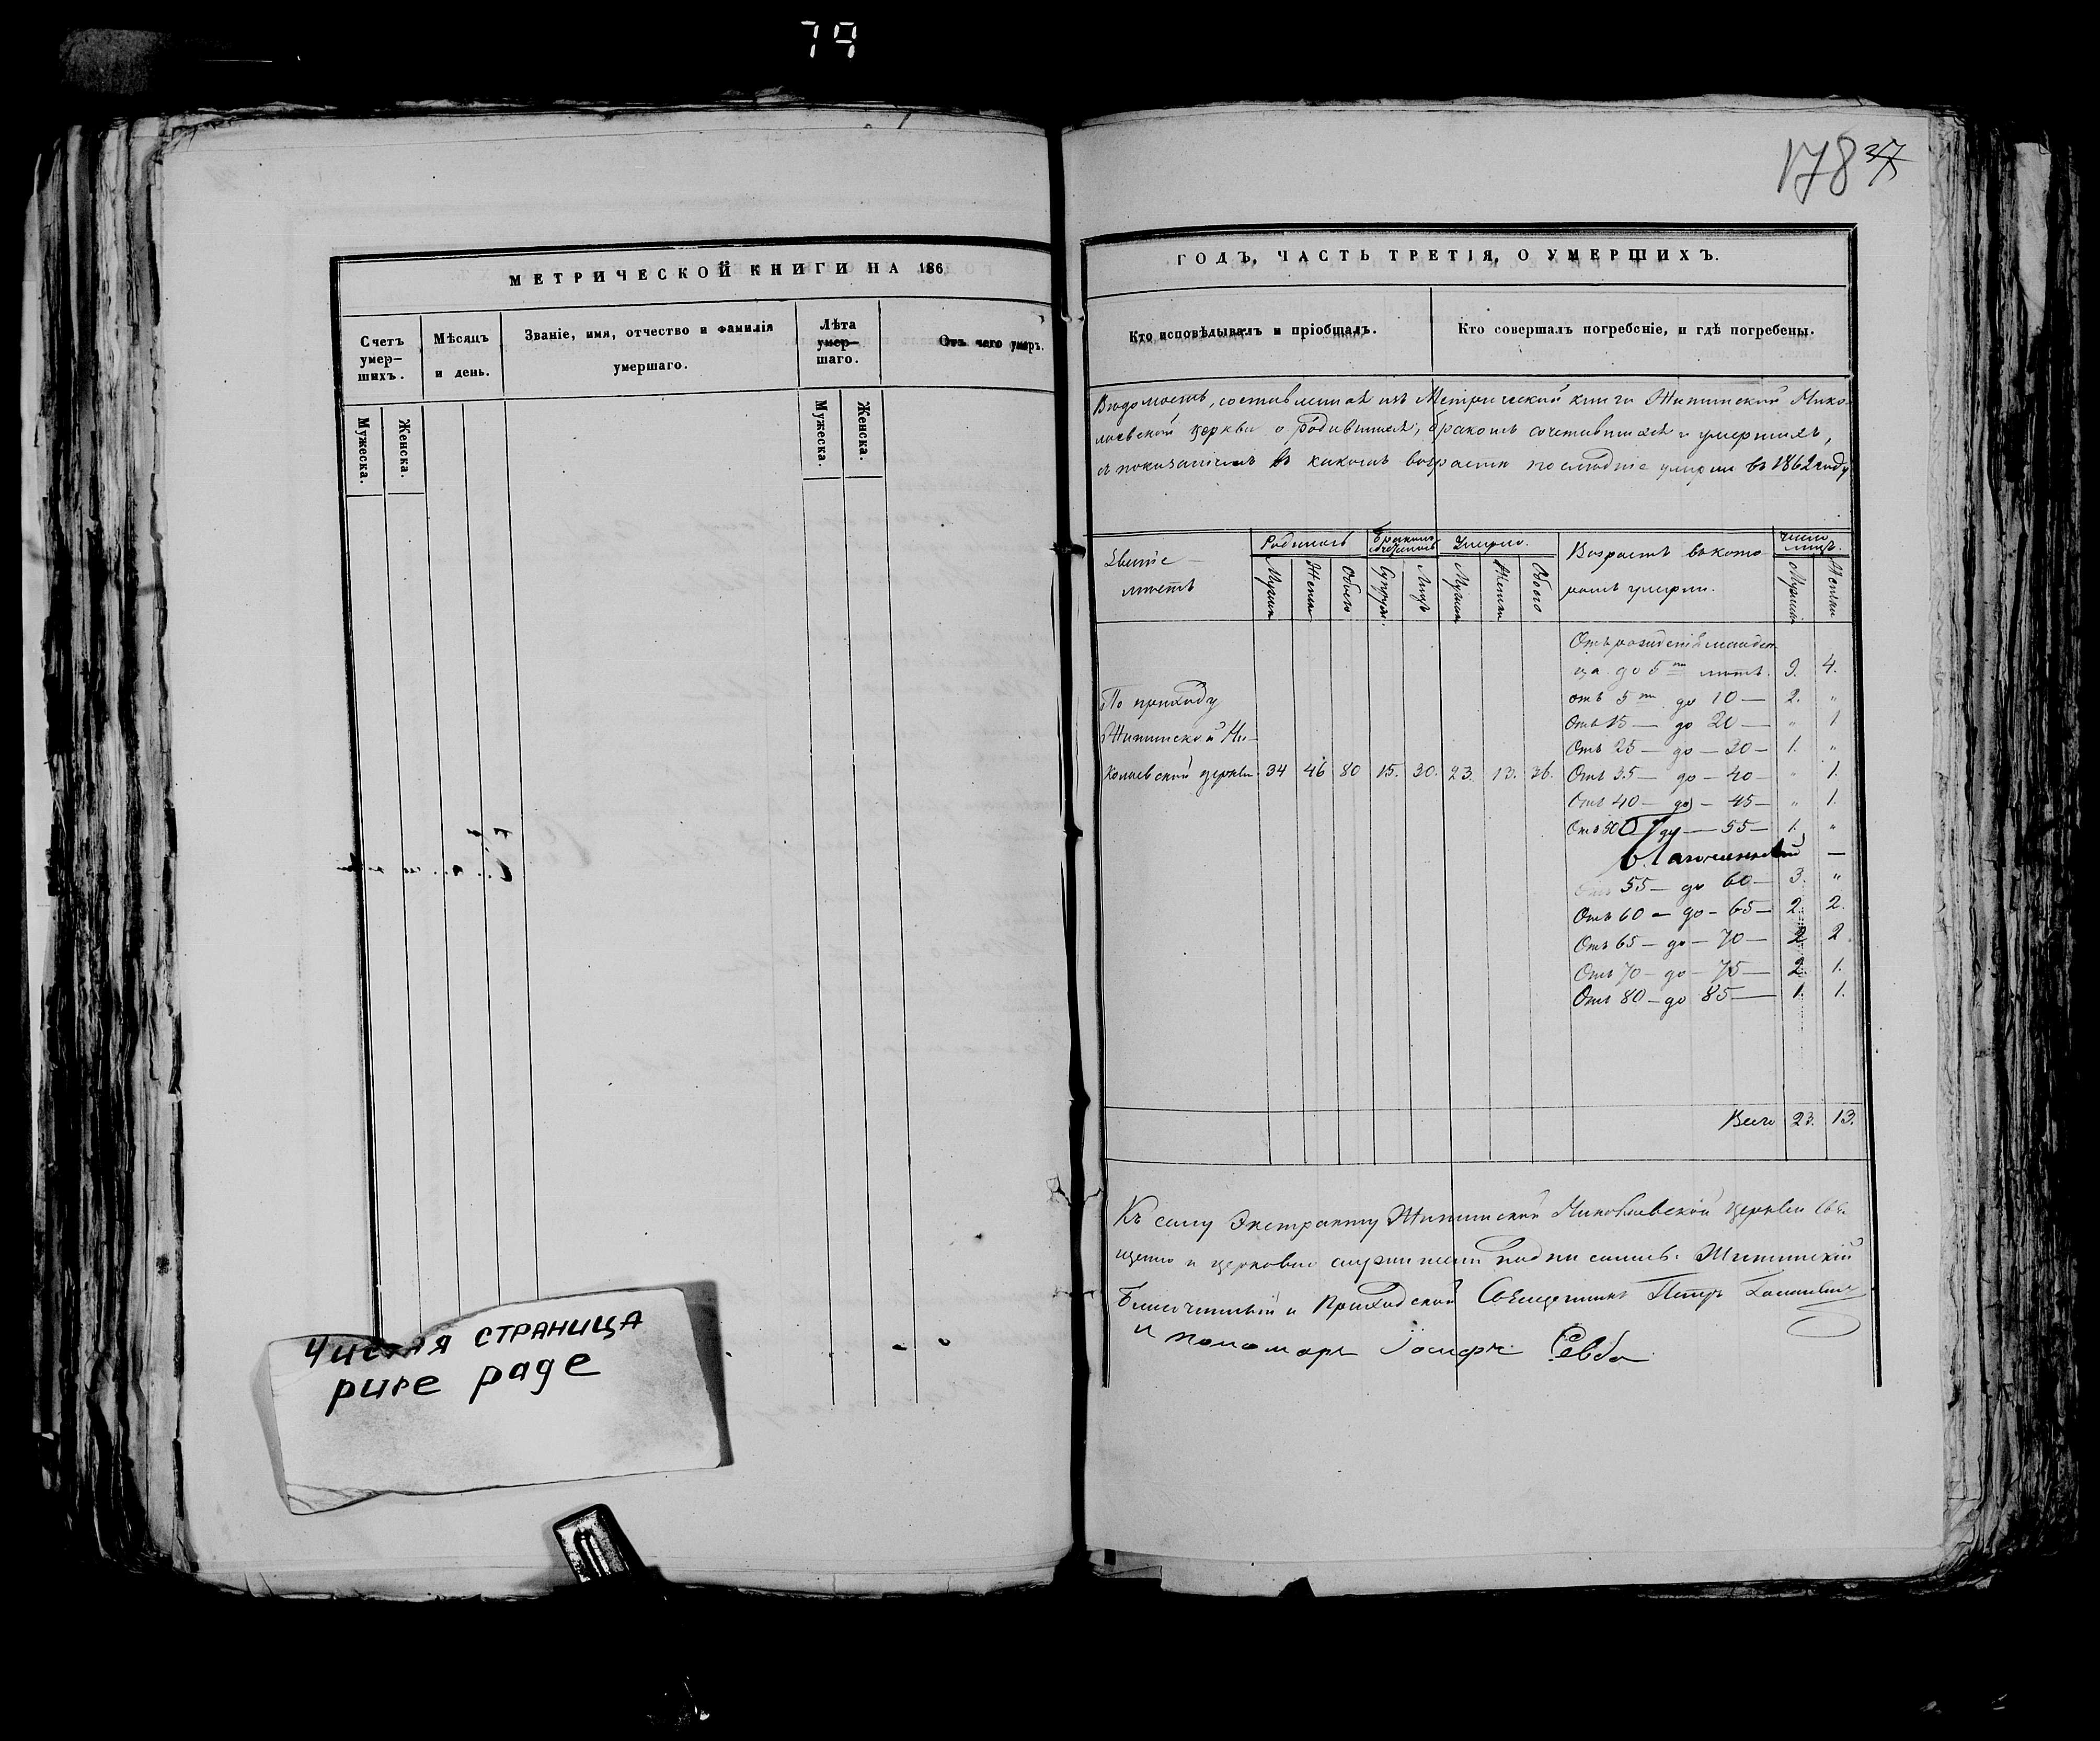 79
178 37
МЕТРИЧЕСКОЙ КНИГИ НА 186
Счетъ умер-шихъ.
Мѣсяцъ и день.
Званіе, имя, отчество и фамилія умершаго.
Лѣта умер-шаго.
Отъ чего умеръ.
Мужеска.
Женска.
Мужеска.
Женска.
Чистая страница
pure page
ГОДЪ, ЧАСТЬ ТРЕТІЯ, О УМЕРШИХЪ.
Кто исповѣдывалъ и пріобщалъ.
Кто совершалъ погребеніе, и гдѣ погребены.
Вѣдомость, составленная изъ Метрической книги Нико-
лаевской церкви о родившихся, бракомъ сочетавшихся и умершихъ,
съ показаніемъ въ какомъ возрастѣ послѣдніе умерли въ 1862 году
Званіе мѣстъ
Родилось
Бракомъ сочеталось
Умерло.
Возрастъ въ кото-
ромъ умерли.
Число лицъ.
Мужска
Женска
Обоего
Супруж.
Лицъ
Мужска
Женска
Обоего
Мужска
Женска
Отъ рожденія младен-
ца до 5ти лѣтъ. 9. 4.
отъ 5ти до 10 — 2. "
По приходу
Отъ 15 — до 20 — " 1
Ни-
Отъ 25 — до — 30 — 1. "
колаевской церкви 34 46 80 15. 30. 23. 13. 36. Отъ 35 — до — 40 — " 1.
Отъ 40 — до — 45 — " 1.
Отъ 50 до — 55 — 1. "
Благочинный —
Отъ 55 — до 60 — 3. "
Отъ 60 — до — 65 — 2. 2.
Отъ 65 — до — 70 — 2 2.
Отъ 70 — до — 75 — 2. 1.
Отъ 80 — до 85 — 1. 1.
Всего 23. 13.
Къ сему Экстракту Николаевской церкви Свя-
щенно и церковно служители подписались.
Благочинный и Приходской Священникъ Петръ
и пономарь Іосифъ